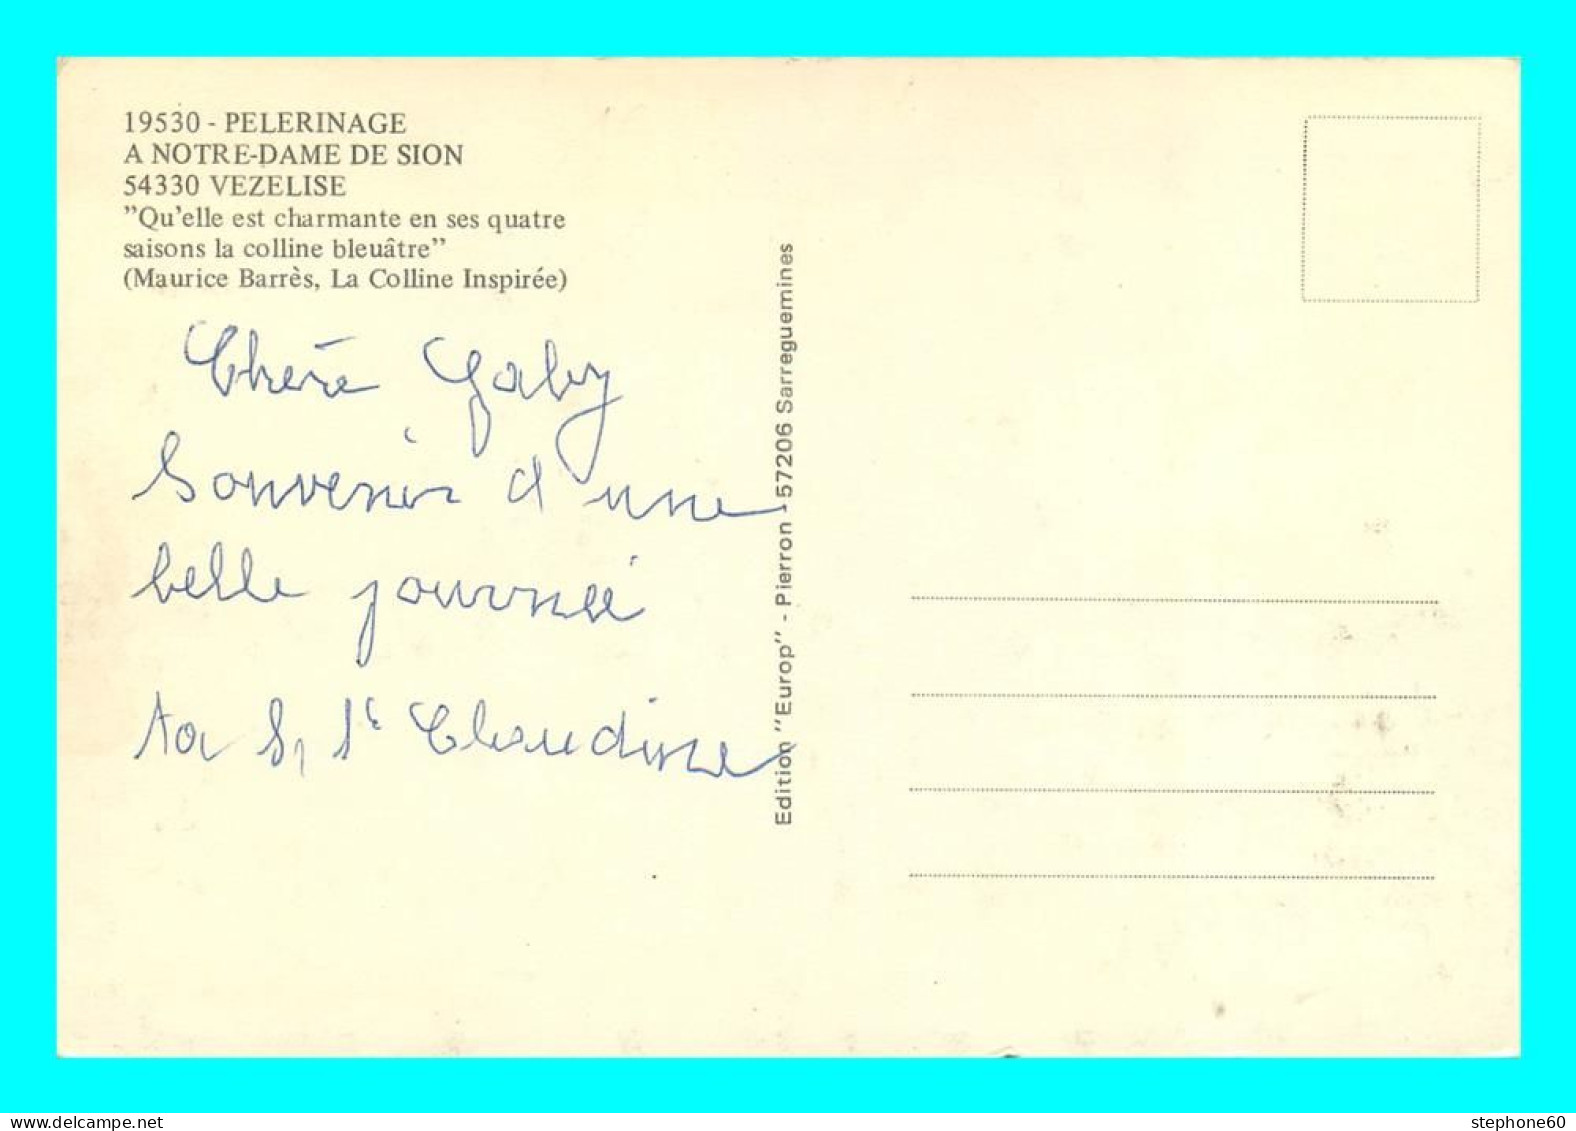 19530 - PELERINAGE
A NOTRE-DAME DE SION
54330 VEZELISE
"Qu'elle est charmante en ses quatre
saisons la colline bleuâtre"
(Maurice Barrès, La Colline Inspirée)
Chère Gaby
Souvenir d'une
belle journée
ta Sr Claudine
Edition "Europ" - Pierron - 57206 Sarreguemines
delcampe.net
stephone60